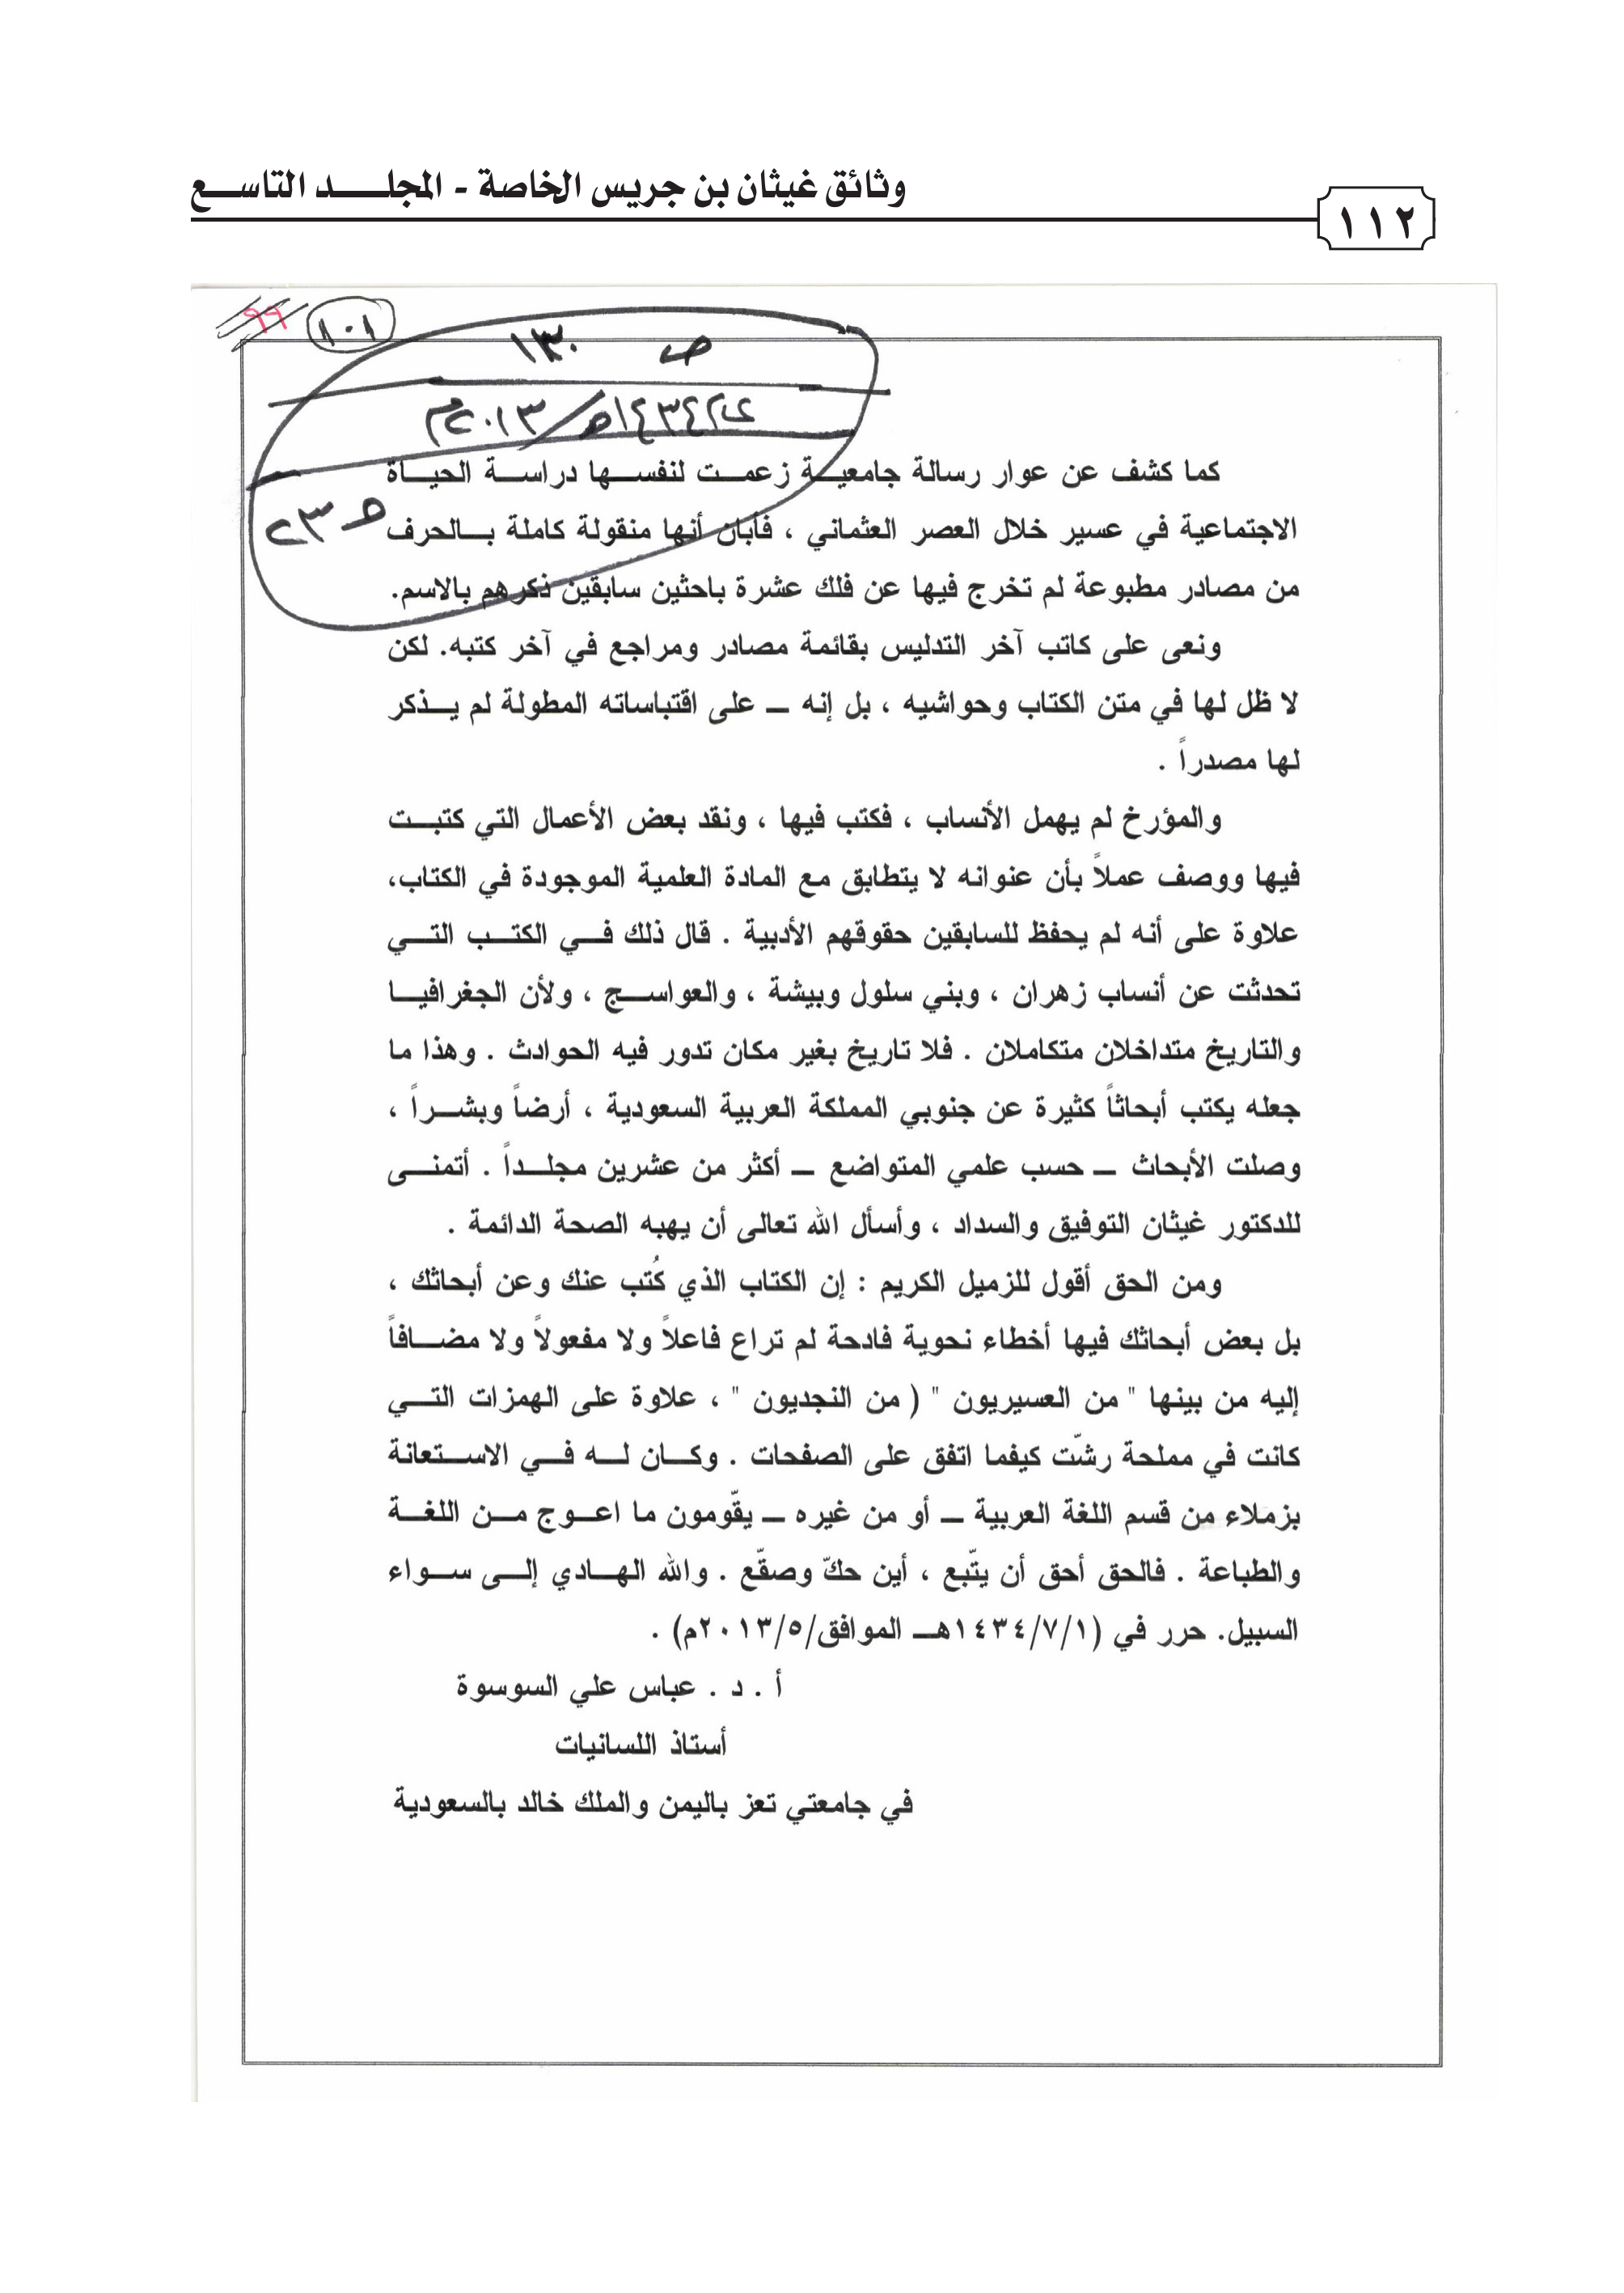 وثائق غيثان بن جريس الخاصة - المجلد التاسع
١١٢
٩٩
١٠١
ص ١٣٠
١٤٣٤هـ/٢٠١٣م
٢٣
كما كشف عن عوار رسالة جامعية زعمت لنفسها دراسة الحياة
الاجتماعية في عسير خلال العصر العثماني ، فأبان أنها منقولة كاملة بالحرف
من مصادر مطبوعة لم تخرج فيها عن فلك عشرة باحثين سابقين ذكرهم بالاسم.
ونعى على كاتب آخر التدليس بقائمة مصادر ومراجع في آخر كتبه. لكن
لا ظل لها في متن الكتاب وحواشيه ، بل إنه ــ على اقتباساته المطولة لم يذكر
لها مصدراً .
والمؤرخ لم يهمل الأنساب ، فكتب فيها ، ونقد بعض الأعمال التي كتبت
فيها ووصف عملاً بأن عنوانه لا يتطابق مع المادة العلمية الموجودة في الكتاب،
علاوة على أنه لم يحفظ للسابقين حقوقهم الأدبية . قال ذلك في الكتب التي
تحدثت عن أنساب زهران ، وبني سلول وبيشة ، والعواسج ، ولأن الجغرافيا
والتاريخ متداخلان متكاملان . فلا تاريخ بغير مكان تدور فيه الحوادث . وهذا ما
جعله يكتب أبحاثاً كثيرة عن جنوبي المملكة العربية السعودية ، أرضاً وبشراً ،
وصلت الأبحاث ــ حسب علمي المتواضع ــ أكثر من عشرين مجلداً . أتمنى
للدكتور غيثان التوفيق والسداد ، وأسأل الله تعالى أن يهبه الصحة الدائمة .
ومن الحق أقول للزميل الكريم : إن الكتاب الذي كُتب عنك وعن أبحاثك ،
بل بعض أبحاثك فيها أخطاء نحوية فادحة لم تراع فاعلاً ولا مفعولاً ولا مضافاً
إليه من بينها " من العسيريون " ( من النجديون " ، علاوة على الهمزات التي
كانت في مملحة رشّت كيفما اتفق على الصفحات . وكان له في الاستعانة
بزملاء من قسم اللغة العربية ــ أو من غيره ــ يقّومون ما اعوج من اللغة
والطباعة . فالحق أحق أن يتّبع ، أين حكّ وصقّع . والله الهادي إلى سواء
السبيل. حرر في (١٤٣٤/٧/١هـ الموافق/٢٠١٣/٥م) .
أ . د . عباس علي السوسوة
أستاذ اللسانيات
في جامعتي تعز باليمن والملك خالد بالسعودية